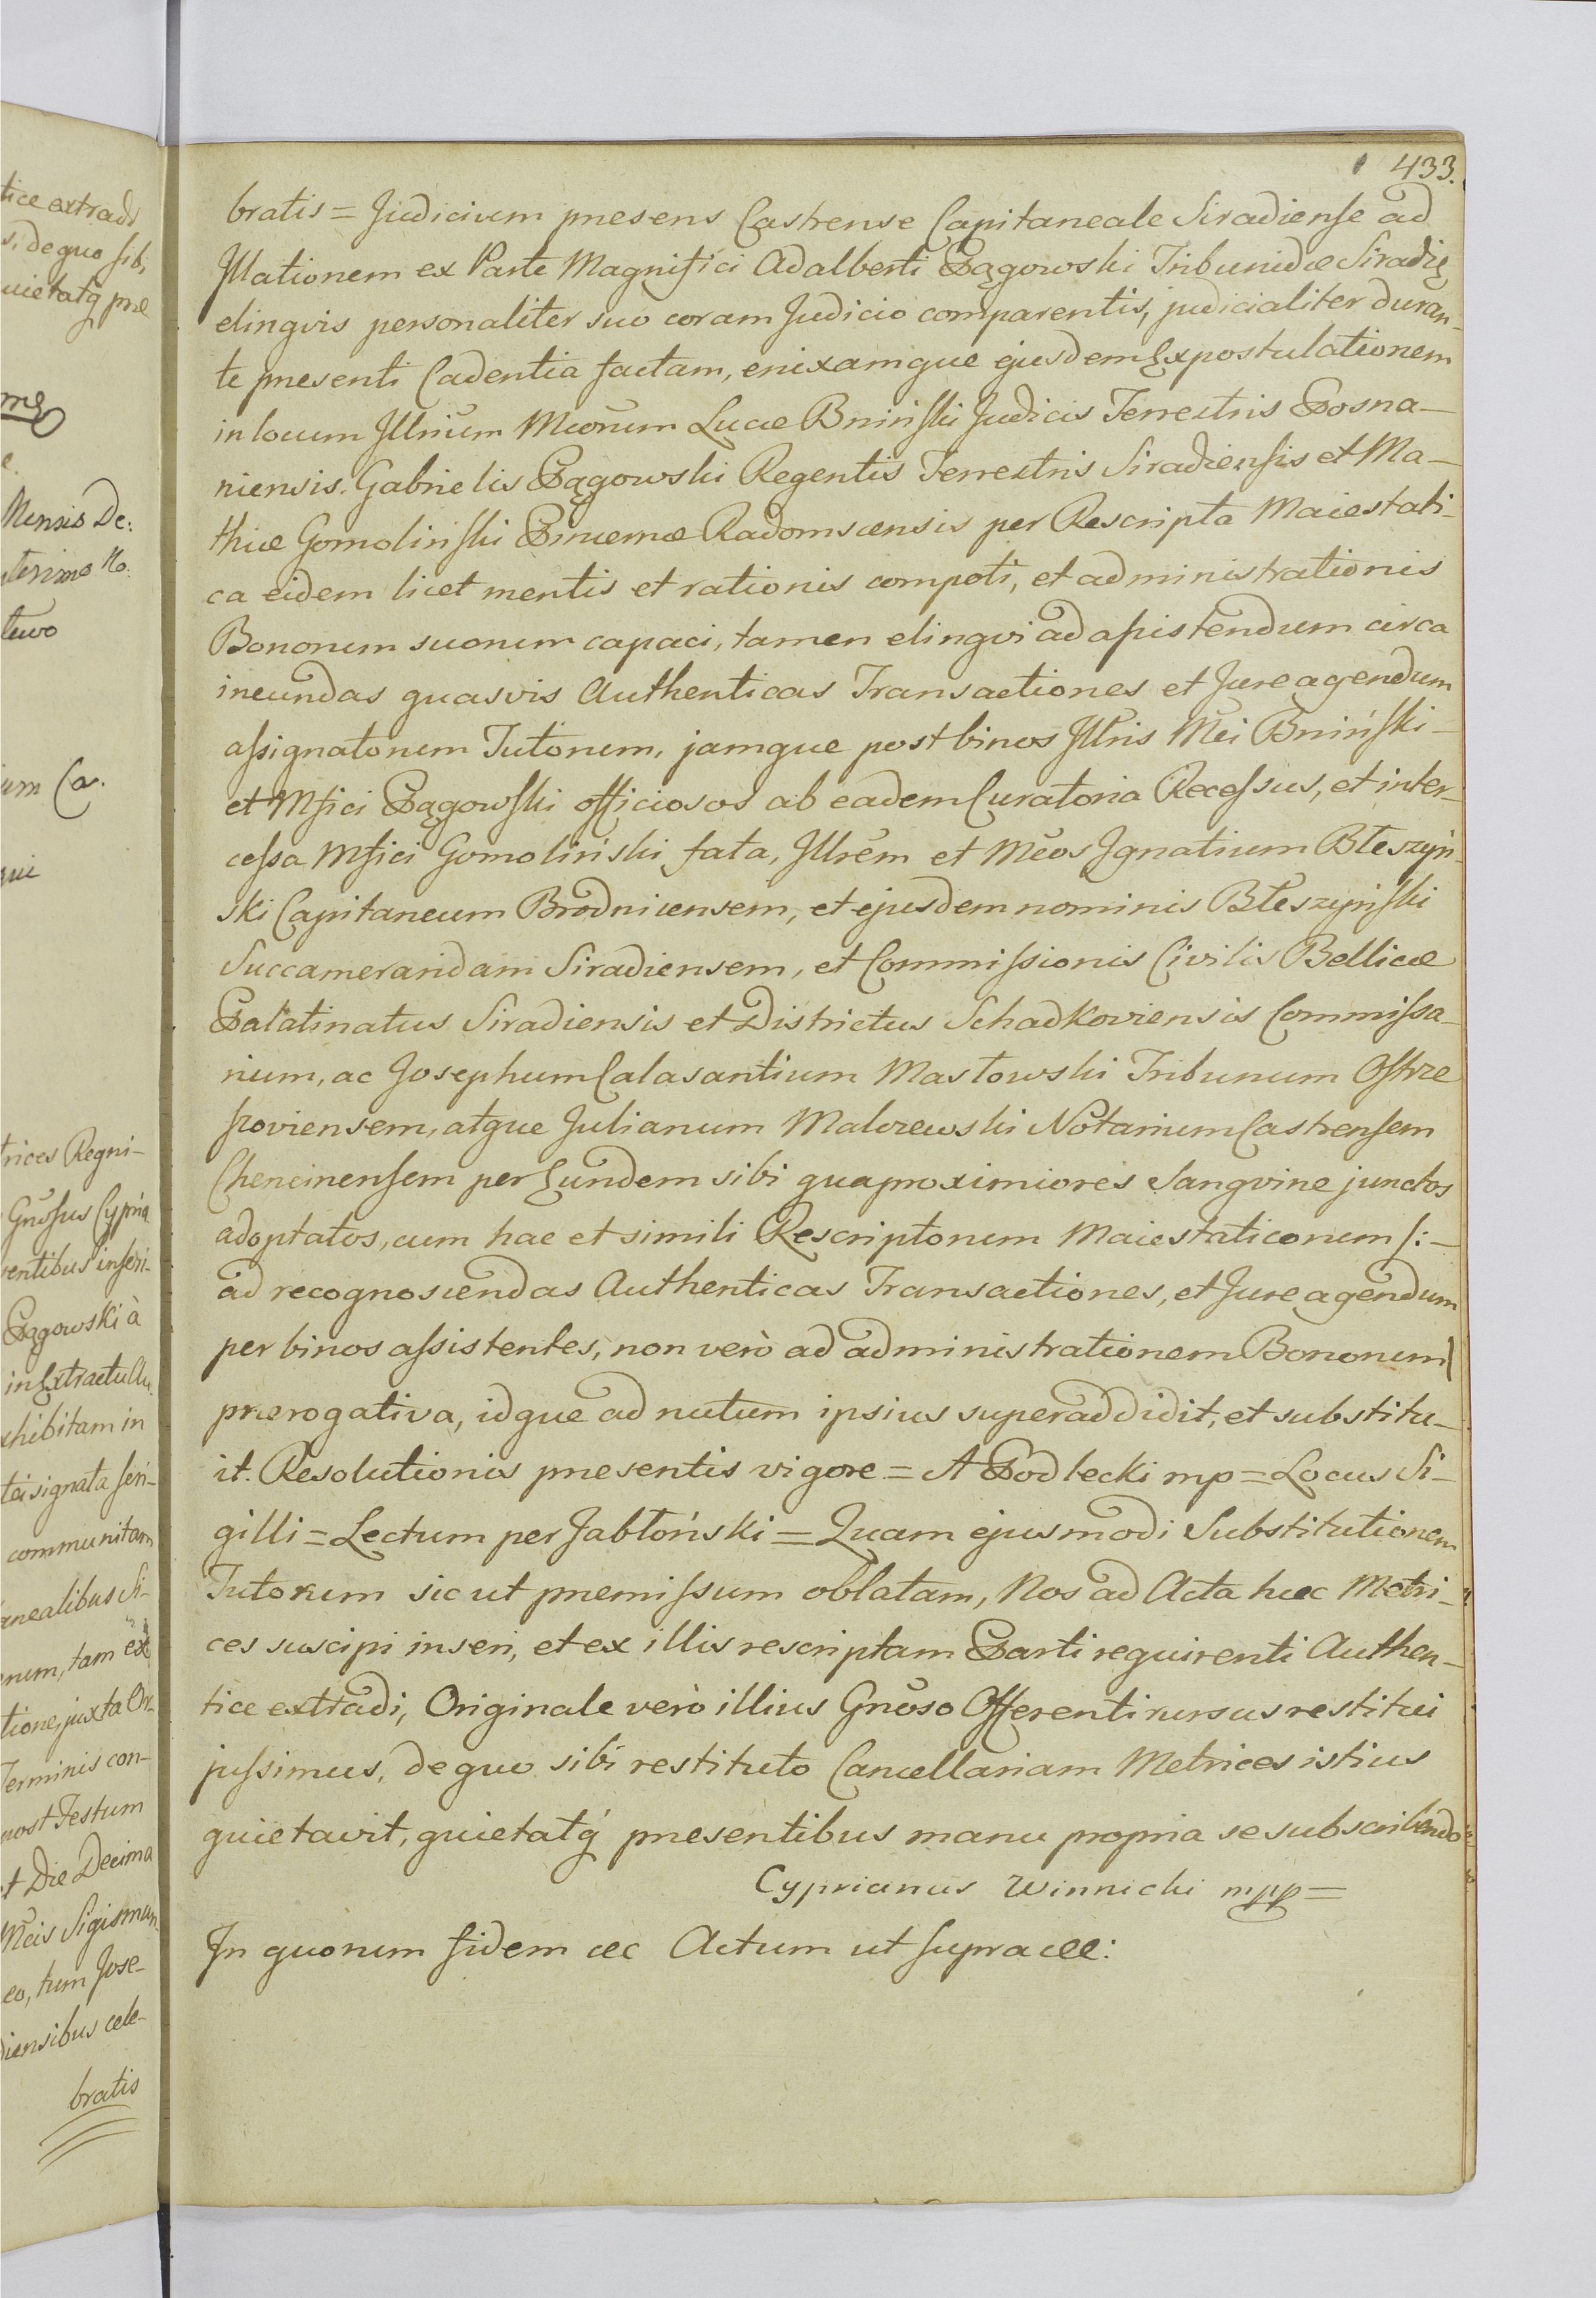 433.
bratis = Judicium presens Castrense Capitaneale Siradiense ad
Jllationem ex Parte Magnifici Adalberti Pągowski Tribunidæ Siradię
elingvis personaliter suo coram Judicio comparentis, judicialiter duran-
te presenti Cadentia factam, enixamque ejusdem Expostulationem
in locum Jllrium Mcorum Lucæ Bninſki Judicis Terrestris Posna-
niensis. Gabrielis Pągowski Regentis Terrestris Siradienſis et Ma-
thiæ Gomolinſki Pincernæ Radomscensis per Rescripta Maiestati-
ca eidem licet mentis et rationis compoti, et administrationis
Bonorum suorum capaci, tamen elingvi ad aſsistendum circa
ineundas quasvis Authenticas Transactiones et Jure agendum
aſsignatorum Tutorum, jamque post binos Jllris Mci Bninſki -
et Mfici Pągowſki officiosos ab eadem Curatoria Receſsus, et inter-
ceſsa Mfici Gomolinski fata, Jllrem et Mcos Jgnatium Błeszyń-
ski Capitaneum Brodnicensem, et ejusdem nominis Błeszyńſki
Succameraridam Siradiensem, et Commiſsionis Civilis Bellicæ
Palatinatus Siradiensis et Districtus Schadkoviensis Commiſsa-
rium, ac Josephum Calasantium Masłowski Tribunum Oſtrze
ſzoviensem, atque Julianum Malczewski Notarium Castrenſem
Chencinenſem per Eundem sibi qua proximiores Sangvine junctos
adoptatos, cum hac et simili Rescriptorum Maiestaticorum /: -
ad recognoscendas Authenticas Transactiones, et Jure agendum
per binos aſsistentes, non verò ad administrationem Bonorum/
prærogativa, idque ad nutum ipsius superaddidit, et substitu-
it. Resolutionis presentis vigore = A Podlecki mp = Locus Si-
gilli = Lectum per Jabłoński = Quam ejusmodi Substitutionem
Tutorum sic ut premiſsum oblatam, Nos ad Acta hæc Metri-
ces suscipi inseri, et ex illis rescriptam Parti requirenti Authen-
tice extradi, Originale verò illius Gnoso Offerenti rursus restitui
juſsimus, de quo sibi restituto Cancellariam Metrices istius
quietavit, quietatq́ presentibus manu propria se subscribendo
Cyprianus Winnicki mpp =
Jn quorum fidem &c Actum ut ſupra &&: